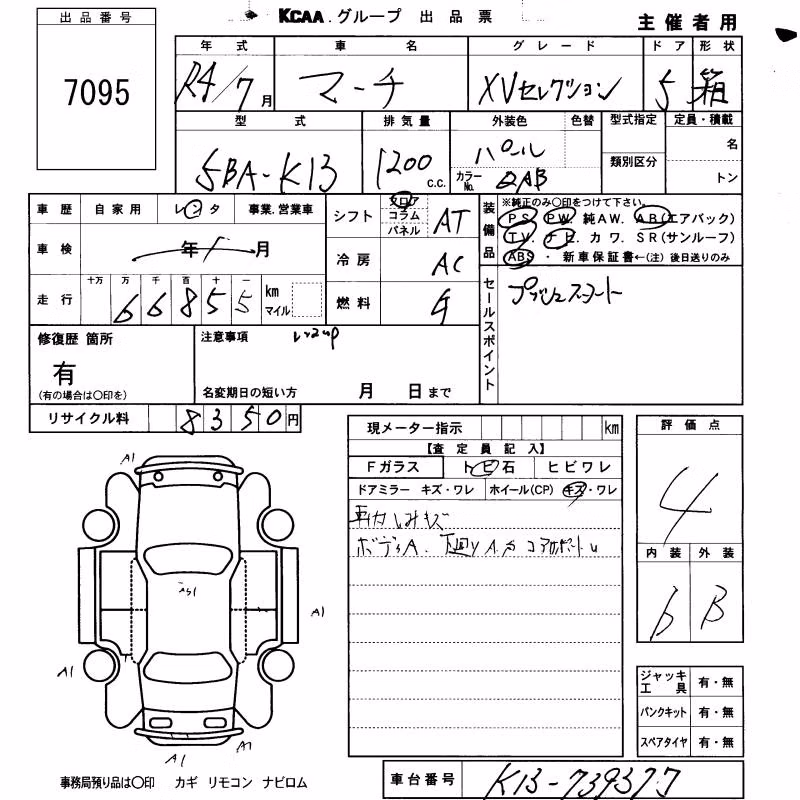 KCAA.グループ 出品票
主催者用
出品番号
7095
年式 車名 グレード ドア 形状
R4/7月 マーチ XVセレクション 5 箱
型式 排気量 外装色 色替 型式指定 定員・積載
5BA-K13 1200 c.c. パール
カラーNo. QAB
類別区分
名
トン
車歴 自家用 レンタ 事業.営業車
車検 年 月
走行 十万 万 千 百 十 一
6 6 8 5 5 km マイル
シフト フロア コラム パネル AT
冷房 AC
燃料 G
装備品
※純正のみ○印をつけて下さい。
PS PW 純AW. AB(エアバック)
TV. ナビ カワ. SR(サンルーフ)
ABS ・ 新車保証書←(注) 後日送りのみ
セールスポイント
プッシュスタート
修復歴 箇所
有
(有の場合は○印を)
注意事項 レンタup
名変期日の短い方 月 日まで
リサイクル料 8350円
現メーター指示 km
【査定員記入】
Fガラス トビ石 ヒビワレ
ドアミラー キズ・ワレ ホイール(CP) キズ・ワレ
車内しみキズ
ボディA. 下回り
評価点
4
内装 外装
b B
A1
A1
A1
A1
A1
A1
ジャッキ工具 有・無
パンクキット 有・無
スペアタイヤ 有・無
事務局預り品は○印 カギ リモコン ナビロム
車台番号 K13-739377